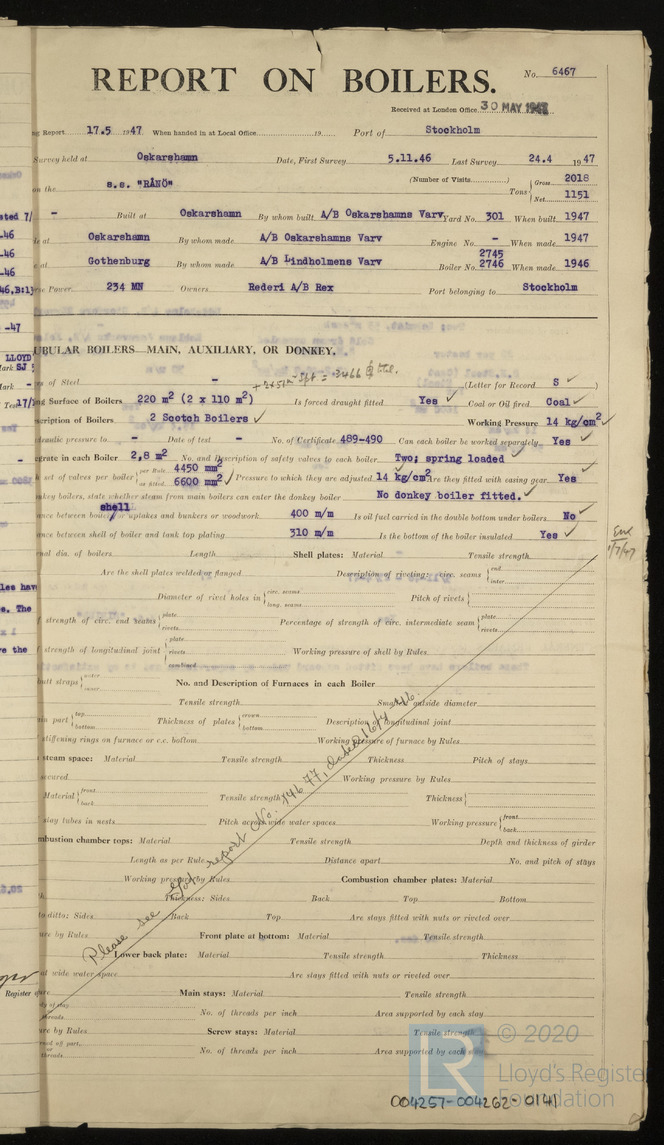 REPORT ON BOILERS.
No. 6467
Received at London Office 30 MAY
Report 17.5 1947 When handed in at Local Office 19 Port of Stockholm
Survey held at Oskarshamn Date, First Survey 5.11.46 Last Survey 24.4 1947
on the s.s. "RÅNÖ" (Number of Visits) Tons Gross 2018
Net 1151
Built at Oskarshamn By whom built A/B Oskarshamns Varv Yard No. 301 When built 1947
Oskarshamn By whom made A/B Oskarshamns Varv Engine No. - When made 1947
Gothenburg By whom made A/B Lindholmens Varv Boiler No. 2745
2746 When made 1946
Power 234 MN Owners Rederi A/B Rex Port belonging to Stockholm
TUBULAR BOILERS—MAIN, AUXILIARY, OR DONKEY.
of Steel - (Letter for Record S)
Surface of Boilers 220 m² (2 x 110 m²) Is forced draught fitted Yes Coal or Oil fired Coal
Description of Boilers 2 Scotch Boilers Working Pressure 14 kg/cm²
pressure to - Date of test - No. of Certificate 489-490 Can each boiler be worked separately Yes
grate in each Boiler 2,8 m² No. and Description of safety valves to each boiler Two; spring loaded
set of valves per boiler per Rule 4450 mm²
as fitted 6600 mm² Pressure to which they are adjusted 14 kg/cm² Are they fitted with easing gear Yes
donkey boilers, state whether steam from main boilers can enter the donkey boiler No donkey boiler fitted.
shell
between boiler uptakes and bunkers or woodwork 400 m/m Is oil fuel carried in the double bottom under boilers No
between shell of boiler and tank top plating 310 m/m Is the bottom of the boiler insulated Yes
dia. of boilers Length Shell plates: Material Tensile strength
Are the shell plates welded or flanged Description of riveting: circ. seams end
inter.
Diameter of rivet holes in circ. seams
long. seams Pitch of rivets
strength of circ. end seams plate
rivets Percentage of strength of circ. intermediate seam plate
rivets
strength of longitudinal joint plate
rivets
combined Working pressure of shell by Rules
butt straps outer
inner No. and Description of Furnaces in each Boiler
Tensile strength Smallest outside diameter
part top
bottom Thickness of plates crown
bottom Description of longitudinal joint
stiffening rings on furnace or c.c. bottom Working pressure of furnace by Rules
steam space: Material Tensile strength Thickness Pitch of stays
secured Working pressure by Rules
Material front
back Tensile strength Thickness
stay tubes in nests Pitch across wide water spaces Working pressure front
back
combustion chamber tops: Material Tensile strength Depth and thickness of girder
Length as per Rule Distance apart No. and pitch of stays
Working pressure by Rules Combustion chamber plates: Material
Thickness: Sides Back Top Bottom
to ditto: Sides Back Top Are stays fitted with nuts or riveted over
by Rules Front plate at bottom: Material Tensile strength
Lower back plate: Material Tensile strength Thickness
at wide water space Are stays fitted with nuts or riveted over
Main stays: Material Tensile strength
No. of threads per inch Area supported by each stay
by Rules Screw stays: Material Tensile strength
No. of threads per inch Area supported by each stay
Please see Got report No. 14677, dated 16/4 46.
© 2020
Lloyd's Register
Foundation
004257-004262-0141